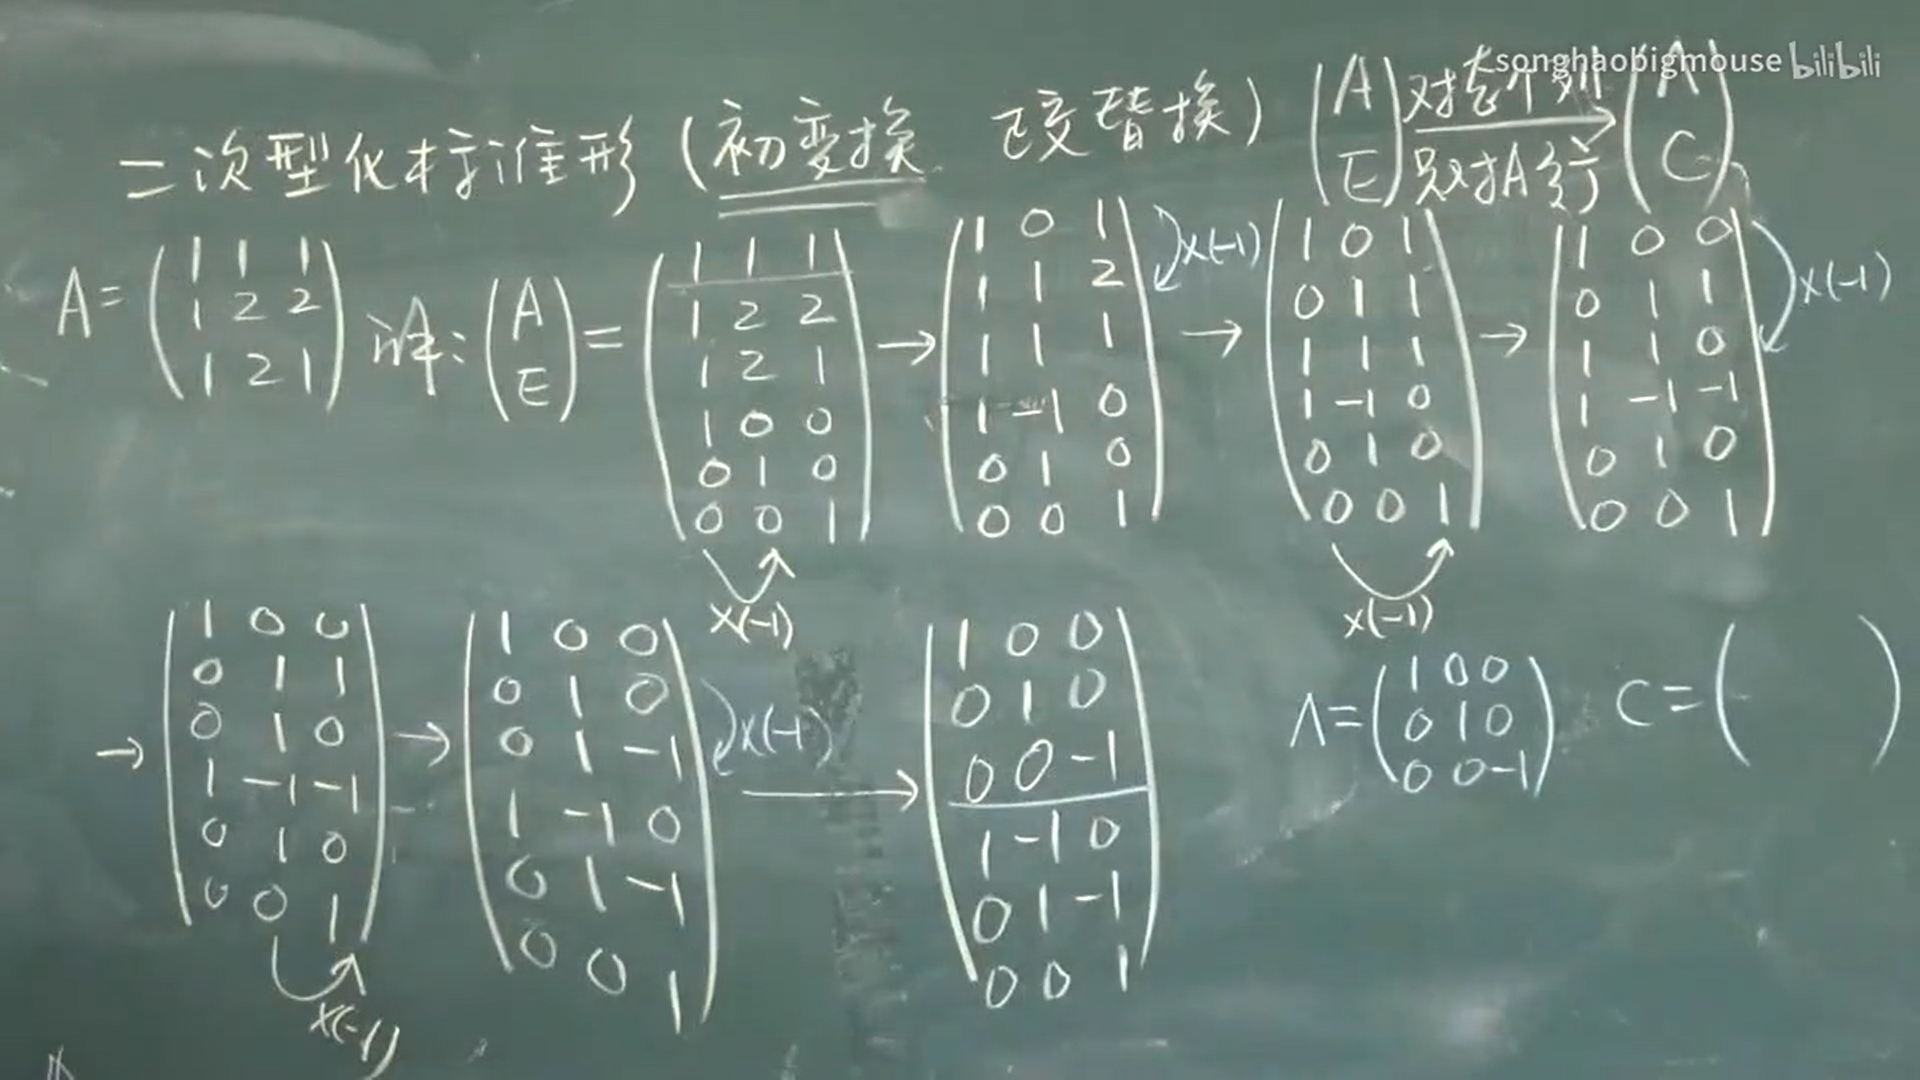 songhaobigmouse bilibili
二次型化标准形(初变换 改替换) (A E) 对整个列 只对A行 (A C)
A= (1 1 1
1 2 2
1 2 1) 解: (A E) = (1 1 1
1 2 2
1 2 1
1 0 0
0 1 0
0 0 1)
x(-1)
→ (1 0 1
1 1 2
1 1 1
1 -1 0
0 1 0
0 0 1) x(-1)
→ (1 0 1
0 1 1
1 1 1
1 -1 0
0 1 0
0 0 1)
x(-1)
→ (1 0 0
0 1 1
1 1 0
1 -1 -1
0 1 0
0 0 1) x(-1)
→ (1 0 0
0 1 1
0 1 0
1 -1 -1
0 1 0
0 0 1)
x(-1)
→ (1 0 0
0 1 0
0 1 -1
1 -1 0
0 1 -1
0 0 1) x(-1)
→ (1 0 0
0 1 0
0 0 -1
1 -1 0
0 1 -1
0 0 1)
Λ= (1 0 0
0 1 0
0 0 -1) C= ( )